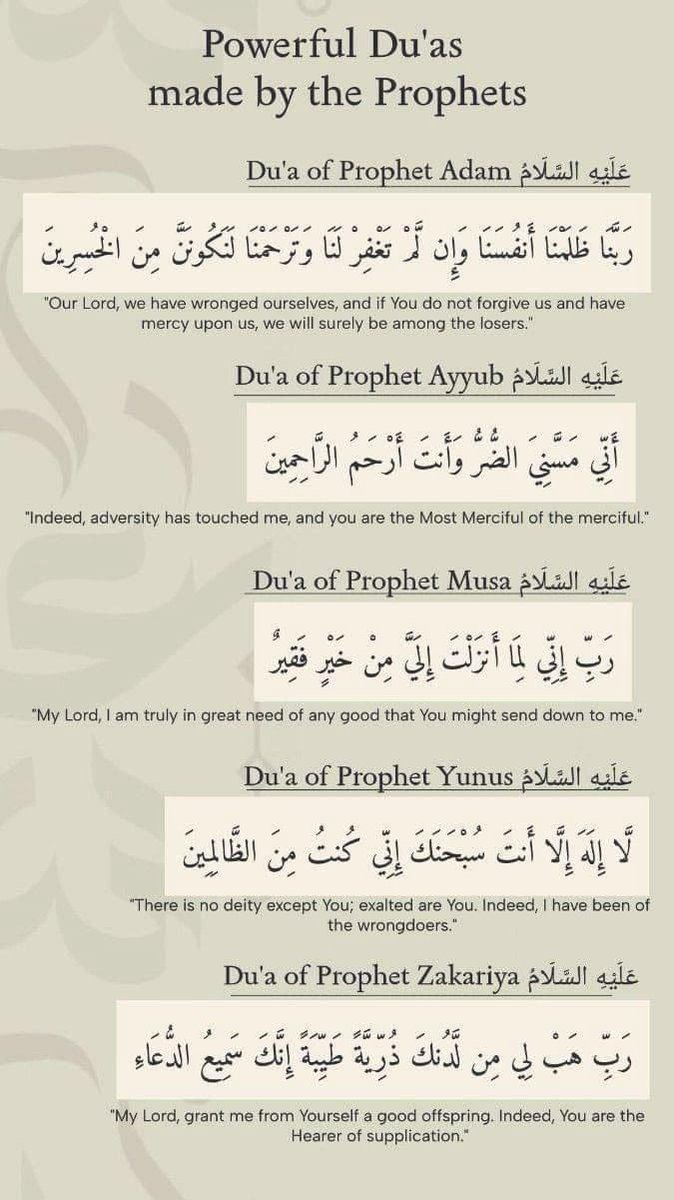 Powerful Du'as
made by the Prophets
Du'a of Prophet Adam عَلَيْهِ السَّلَامُ
رَبَّنَا ظَلَمْنَا أَنفُسَنَا وَإِن لَّمْ تَغْفِرْ لَنَا وَتَرْحَمْنَا لَنَكُونَنَّ مِنَ الْخَٰسِرِينَ
"Our Lord, we have wronged ourselves, and if You do not forgive us and have
mercy upon us, we will surely be among the losers."
Du'a of Prophet Ayyub عَلَيْهِ السَّلَامُ
أَنِّي مَسَّنِيَ الضُّرُّ وَأَنتَ أَرْحَمُ الرَّاحِمِينَ
"Indeed, adversity has touched me, and you are the Most Merciful of the merciful."
Du'a of Prophet Musa عَلَيْهِ السَّلَامُ
رَبِّ إِنِّي لِمَا أَنزَلْتَ إِلَيَّ مِنْ خَيْرٍ فَقِيرٌ
"My Lord, I am truly in great need of any good that You might send down to me."
Du'a of Prophet Yunus عَلَيْهِ السَّلَامُ
لَّا إِلَٰهَ إِلَّا أَنتَ سُبْحَٰنَكَ إِنِّي كُنتُ مِنَ الظَّالِمِينَ
"There is no deity except You; exalted are You. Indeed, I have been of
the wrongdoers."
Du'a of Prophet Zakariya عَلَيْهِ السَّلَامُ
رَبِّ هَبْ لِي مِن لَّدُنكَ ذُرِّيَّةً طَيِّبَةً إِنَّكَ سَمِيعُ الدُّعَاءِ
"My Lord, grant me from Yourself a good offspring. Indeed, You are the
Hearer of supplication."